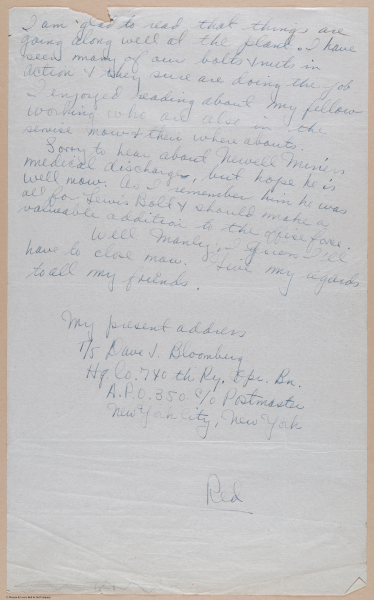 I am glad to read that things are
going along well at the plant. I have
seen many of our bolts & nuts in
action & they sure are doing the job
I enjoyed reading about my fellow
working who are also in the
service now & their where abouts.
Sorry to hear about Newell Miner's
medical discharge, but hope he is
well now. As I remember him he was
all for Lewis Bolt & should make a
valuable addition to the office force.
Well Manley, I guess I'll
have to close now. Give my regards
to all my friends.
My present address
T/5 Dave J. Bloomberg
Hq. Co. 740th Ry. Opr. Bn.
A.P.O. 350 c/o Postmaster
New York City, New York
Red